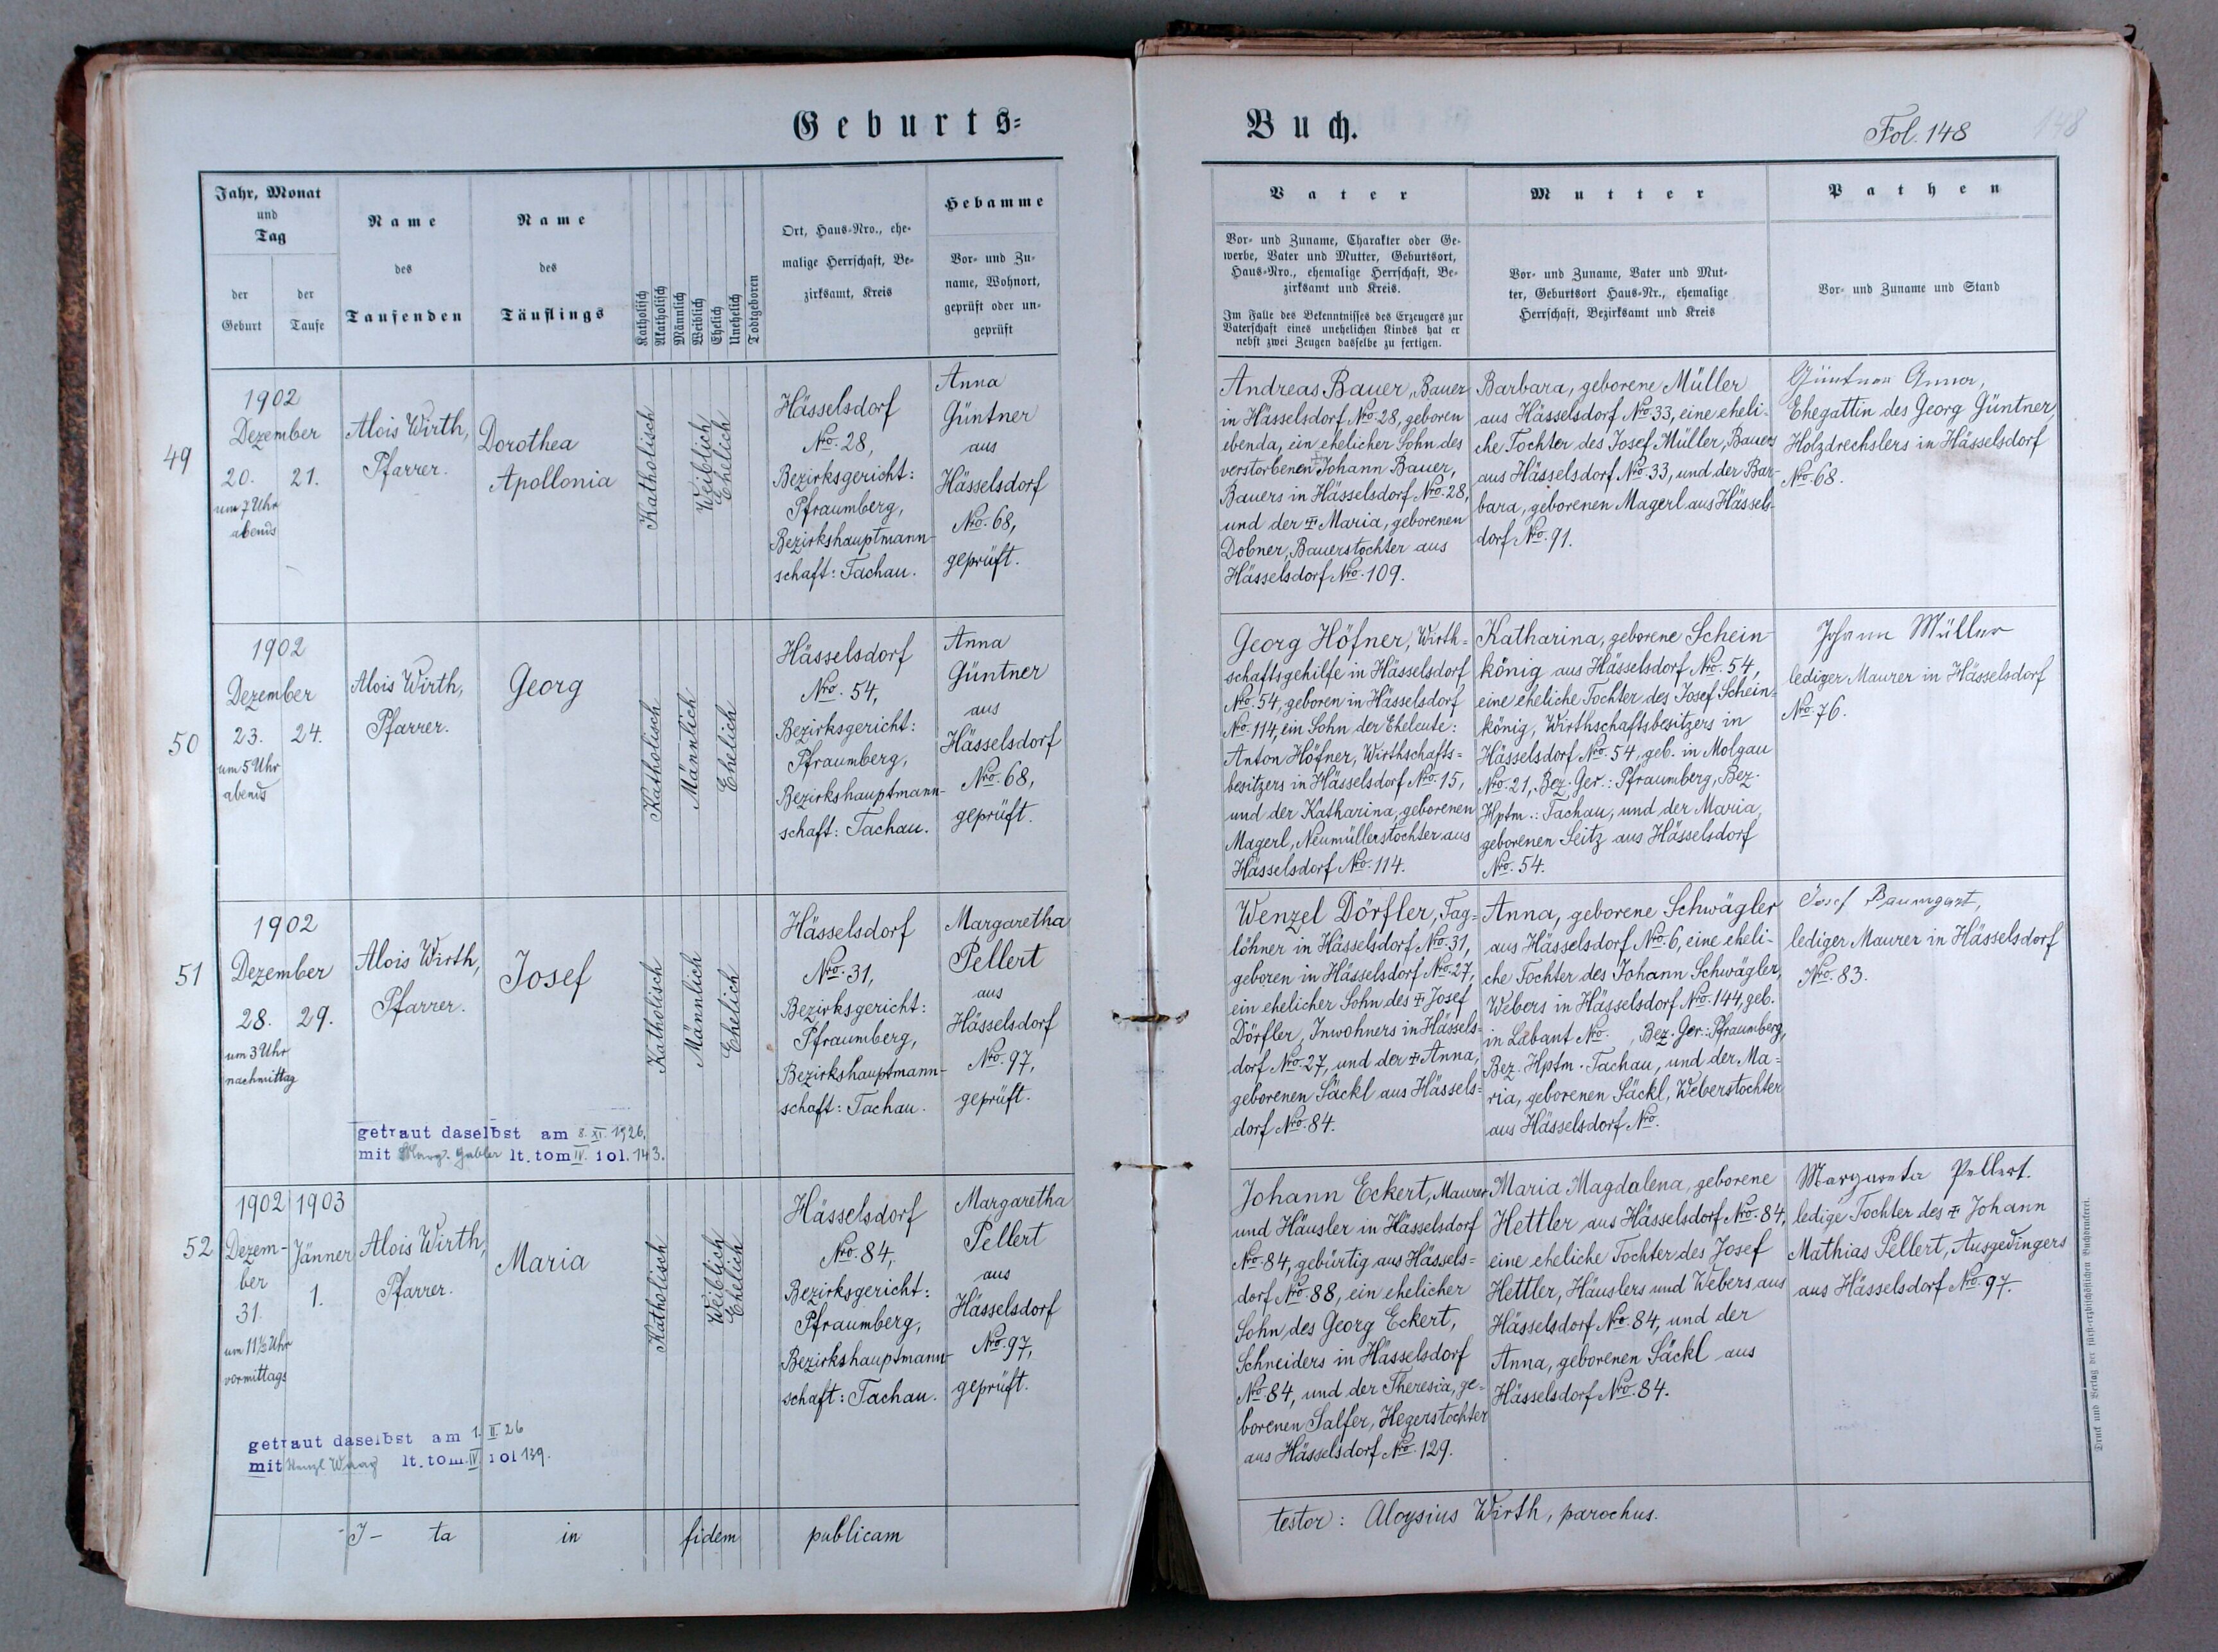 Geburts=
Buch.
Fol. 148
148
Jahr, Monat
und
Tag
der
Geburt
der
Taufe
Name
des
Taufenden
Name
des
Täuflings
Katholisch
Akatholisch
Männlich
Weiblich
Ehelich
Unehelich
Todtgeboren
Ort, Haus-Nro., ehe-
malige Herrschaft, Be-
zirksamt, Kreis
Hebamme
Vor- und Zu-
name, Wohnort,
geprüft oder un-
geprüft
Vater
Vor- und Zuname, Charakter oder Ge-
werbe, Vater und Mutter, Geburtsort,
Haus-Nro., ehemalige Herrschaft, Be-
zirksamt und Kreis.
Im Falle des Bekenntnisses des Erzeugers zur
Vaterschaft eines unehelichen Kindes hat er
nebst zwei Zeugen dasselbe zu fertigen.
Mutter
Vor- und Zuname, Vater und Mut-
ter, Geburtsort Haus-Nr., ehemalige
Herrschaft, Bezirksamt und Kreis
Pathen
Vor- und Zuname und Stand
49
1902
Dezember
20.
21.
um 7 Uhr
abends
Alois Wirth,
Pfarrer.
Dorothea
Apollonia
Katholisch
Weiblich
Ehelich
Hässelsdorf
Nro. 28,
Bezirksgericht:
Pfraumberg,
Bezirkshauptmann-
schaft: Tachau.
Anna
Güntner
aus
Hässelsdorf
Nro. 68,
geprüft.
Andreas Bauer, Bauer
in Hässelsdorf Nro. 28, geboren
ebenda, ein ehelicher Sohn des
verstorbenen Johann Bauer,
Bauers in Hässelsdorf Nro. 28,
und der ‡ Maria, geborenen
Dobner, Bauerstochter aus
Hässelsdorf Nro. 109.
Barbara, geborene Müller
aus Hässelsdorf Nro. 33, eine eheli-
che Tochter des Josef Müller, Bauers
aus Hässelsdorf Nro. 33, und der Bar-
bara, geborenen Magerl aus Hässels-
dorf Nro. 91.
Güntner Anna,
Ehegattin des Georg Güntner,
Holzdrechslers in Hässelsdorf
Nro. 68.
50
1902
Dezember
23.
24.
um 5 Uhr
abends
Alois Wirth,
Pfarrer.
Georg
Katholisch
Männlich
Ehelich
Hässelsdorf
Nro. 54,
Bezirksgericht:
Pfraumberg,
Bezirkshauptmann-
schaft: Tachau.
Anna
Güntner
aus
Hässelsdorf
Nro. 68,
geprüft.
Georg Höfner, Wirth=
schaftsgehilfe in Hässelsdorf
Nro. 54, geboren in Hässelsdorf
Nro. 114, ein Sohn der Eheleute:
Anton Höfner, Wirthschafts=
besitzers in Hässelsdorf Nro. 15,
und der Katharina, geborenen
Magerl, Neumüllerstochter aus
Hässelsdorf Nro. 114.
Katharina, geborene Schein-
könig aus Hässelsdorf Nro. 54,
eine eheliche Tochter des Josef Schein=
könig, Wirthschaftsbesitzers in
Hässelsdorf Nro. 54, geb. in Molgau
Nro. 21, Bez. Ger.: Pfraumberg, Bez.
Hptm.: Tachau, und der Maria,
geborenen Seitz aus Hässelsdorf
Nro. 54.
Johann Müller
lediger Maurer in Hässelsdorf
Nro. 76.
51
1902
Dezember
28.
29.
um 3 Uhr
nachmittag
Alois Wirth,
Pfarrer.
Josef
Katholisch
Männlich
Ehelich
Hässelsdorf
Nro. 31,
Bezirksgericht:
Pfraumberg,
Bezirkshauptmann-
schaft: Tachau.
Margaretha
Pellert
aus
Hässelsdorf
Nro. 97,
geprüft.
getraut daselbst am 8. XI. 1926.
mit Marg. Gabler lt. tom IV. fol. 143.
Wenzel Dörfler, Tag=
löhner in Hässelsdorf Nro. 31,
geboren in Hässelsdorf Nro. 27,
ein ehelicher Sohn des ‡ Josef
Dörfler, Inwohners in Hässels=
dorf Nro. 27, und der ‡ Anna,
geborenen Säckl aus Hässels=
dorf Nro. 84.
Anna, geborene Schwägler
aus Hässelsdorf Nro. 6, eine eheli-
che Tochter des Johann Schwägler,
Webers in Hässelsdorf Nro. 144, geb.
in Labant Nro. , Bez. Ger.: Pfraumberg,
Bez. Hptm. Tachau, und der Ma=
ria, geborenen Säckl, Weberstochter
aus Hässelsdorf Nro.
Josef Baumgart,
lediger Maurer in Hässelsdorf
Nro. 83.
52
1902
1903
Dezem-
ber
31.
Jänner
1.
um 11½ Uhr
vormittags
Alois Wirth,
Pfarrer.
Maria
Katholisch
Weiblich
Ehelich
Hässelsdorf
Nro. 84,
Bezirksgericht:
Pfraumberg,
Bezirkshauptmann-
schaft: Tachau.
Margaretha
Pellert
aus
Hässelsdorf
Nro. 97,
geprüft.
getraut daselbst am 1. II. 26
mit Wenzl lt. tom. IV. fol 139.
Johann Eckert, Maurer
und Häusler in Hässelsdorf
Nro. 84, gebürtig aus Hässels=
dorf Nro. 88, ein ehelicher
Sohn des Georg Eckert,
Schneiders in Hässelsdorf
Nro. 84, und der Theresia, ge-
borenen Salfer, Hegerstochter
aus Hässelsdorf Nro. 129.
Maria Magdalena, geborene
Hettler aus Hässelsdorf Nro. 84,
eine eheliche Tochter des Josef
Hettler, Häuslers und Webers aus
Hässelsdorf Nro. 84, und der
Anna, geborenen Säckl aus
Hässelsdorf Nro. 84.
Margareta Pellert.
ledige Tochter des ‡ Johann
Mathias Pellert, Ausgedingers
aus Hässelsdorf Nro. 97.
I- ta in fidem publicam
testor: Aloysius Wirth, parochus.
Druck und Verlag der fürst-erzbischöflichen Buchdruckerei.